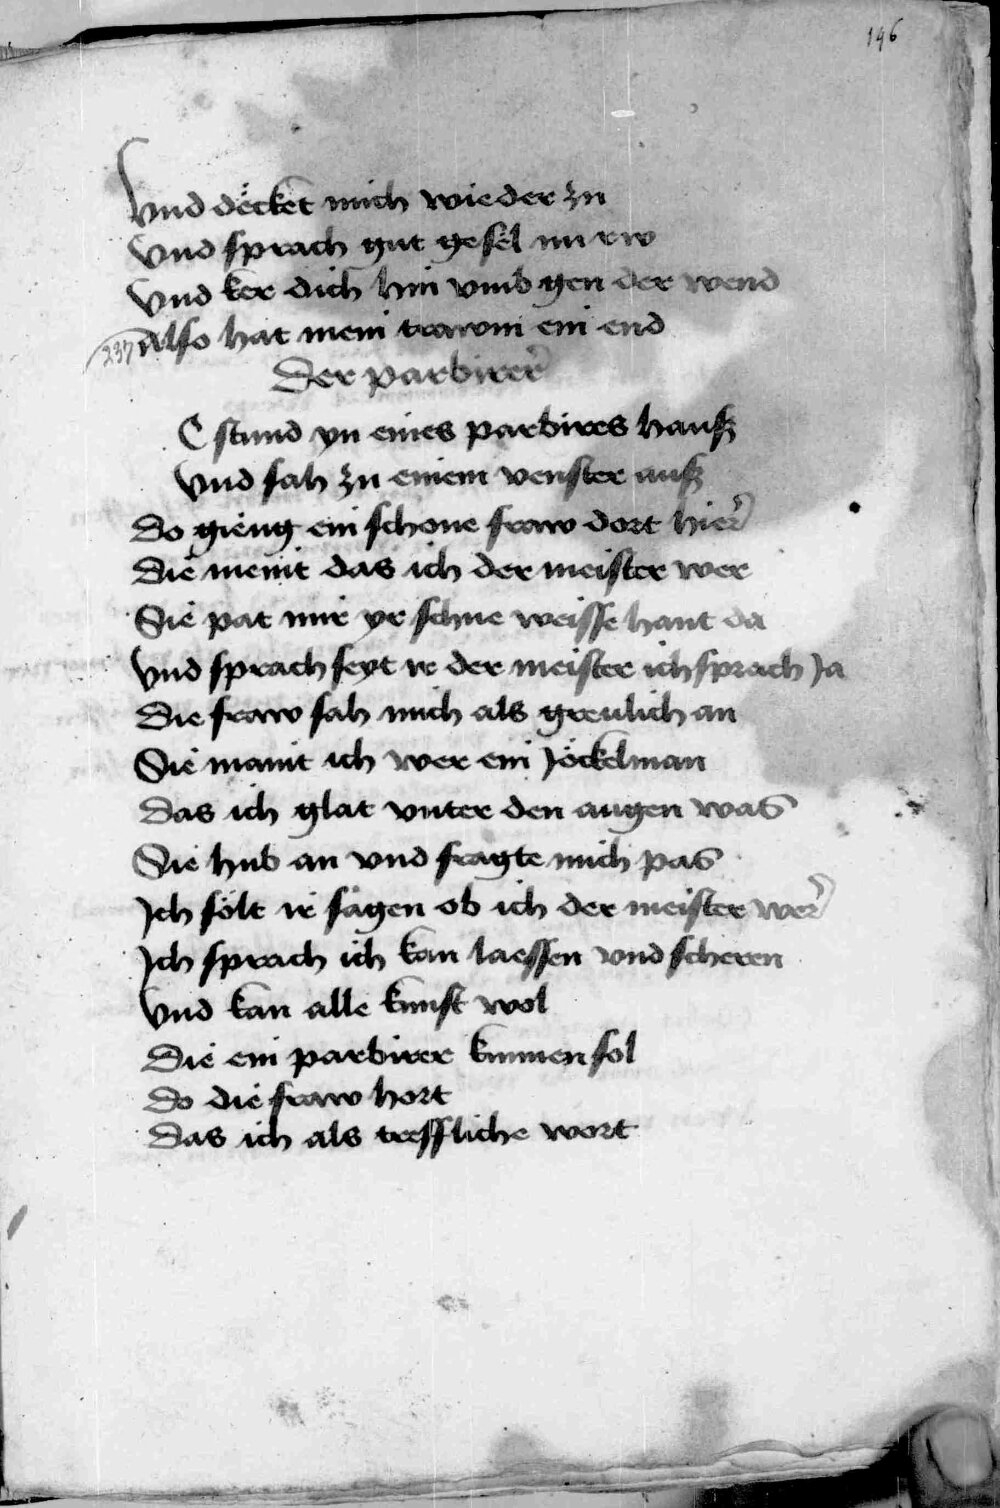 146
Vnd dëcket mich wieder zu
Vnd sprach gut gesel nu rw
Vnd ker dich hin vmb gen der wend
237 Also hat mein trawm ein end
Der parbirer
C stund yn eines parbires hauß
Vnd sah zu einem venster auß
Do gieng ein schone fraw dort hier
Die meint das ich der meister wer
Sie pat mir yr schne weisse hant da
Vnd sprach seyt ir der meister ich sprach Ja
Die fraw sah mich als greulich an
Sie maint ich wer ein Jöckelman
Das ich glat vnter den augen was
Sie hub an vnd fragte mich pas
Ich sölt ir sagen ob ich der meister wer
Ich sprach ich kan laessen vnd scheren
Vnd kan alle kunst wol
Die ein parbirer kunnen sol
Do die fraw hort
Das ich als treffliche wort